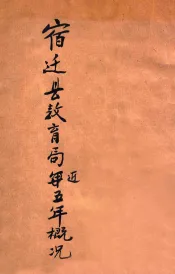 宿迁县教育局近五年概况